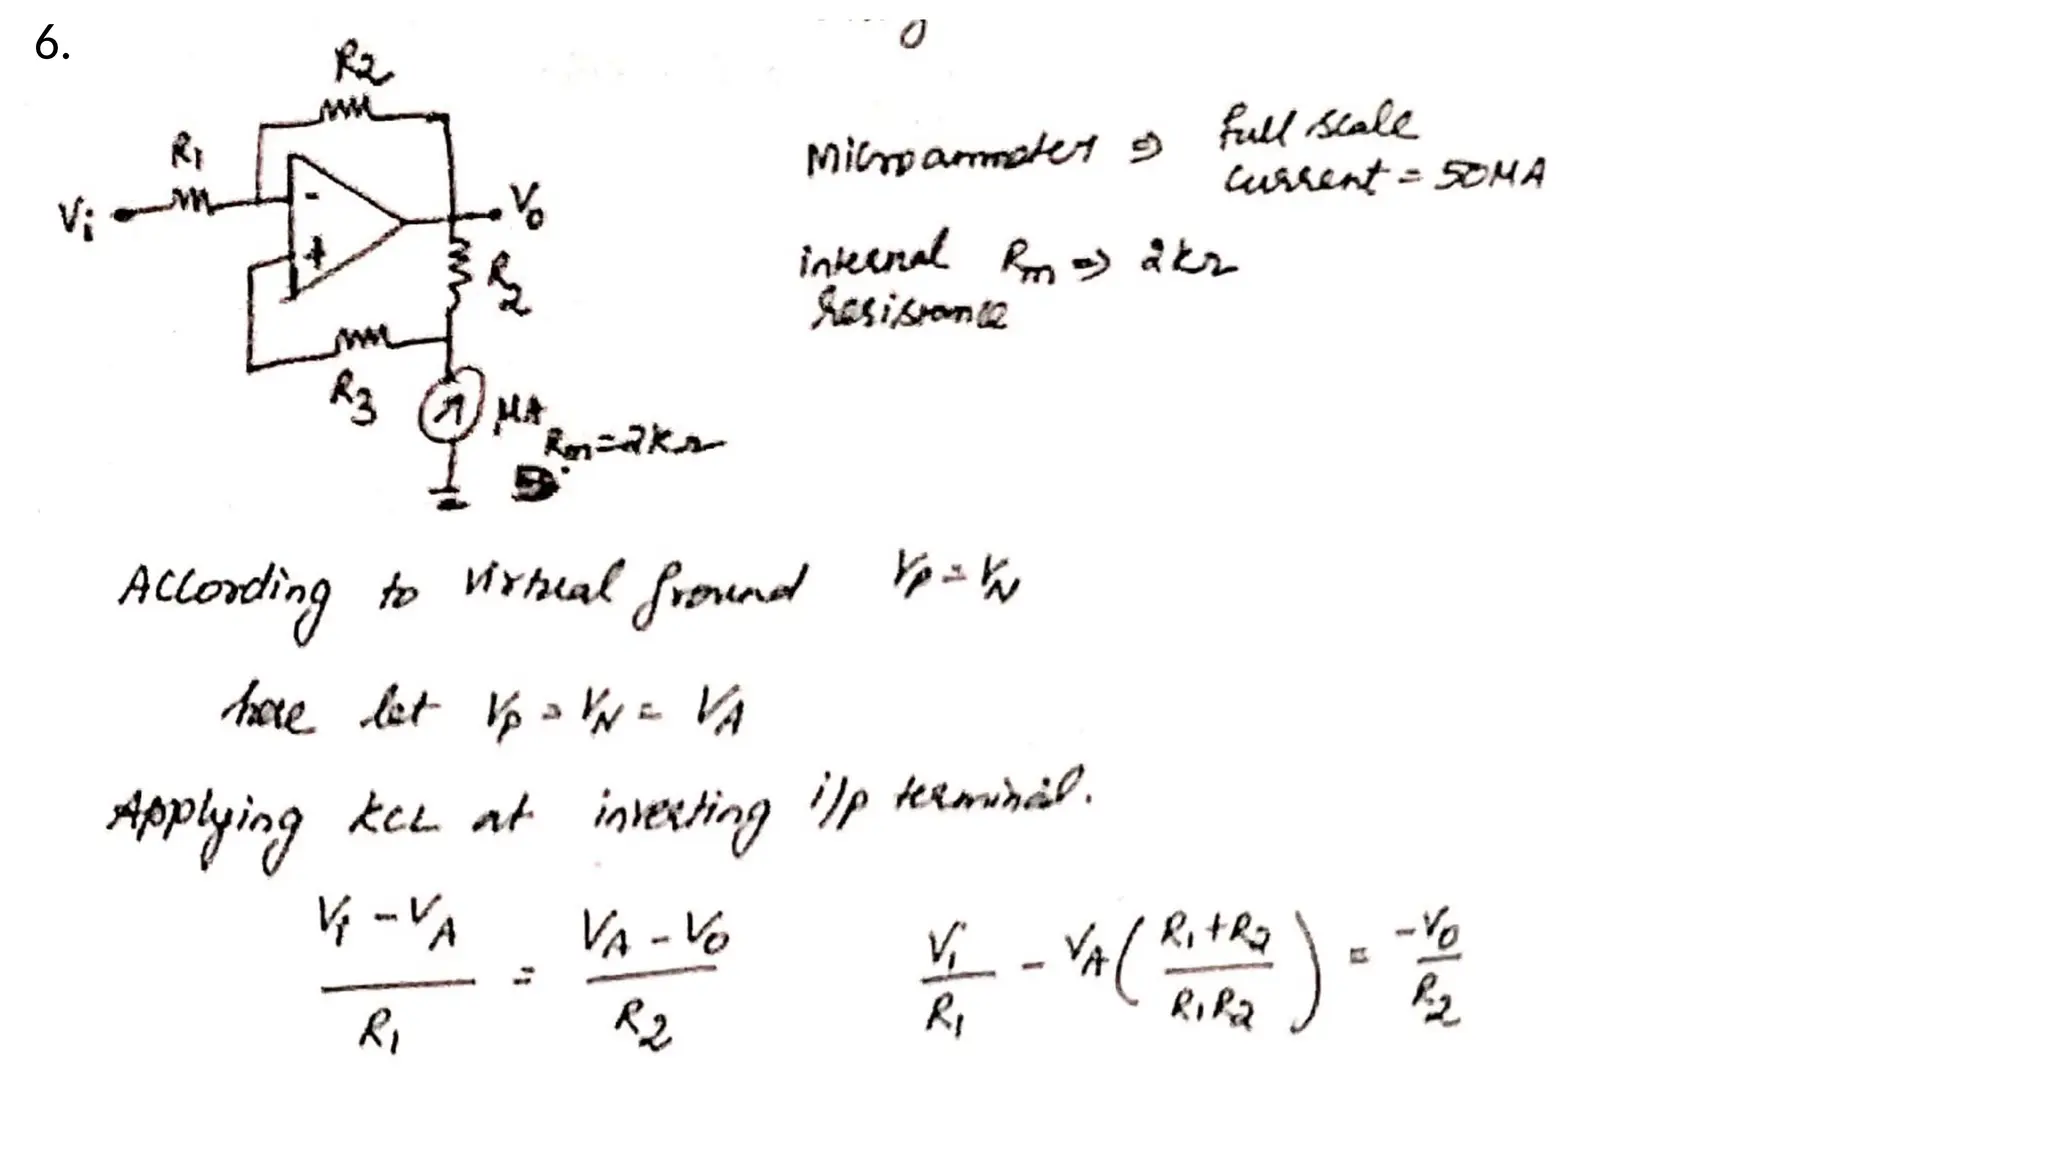 6.
R2
R1
Vi
-
+
Vo
R2
R3
μA
Rm=2kΩ
Microammeter ⇒ full scale
current = 50μA
internal Rm ⇒ 2kΩ
resistance
According to virtual ground Vp = VN
here let Vp = VN = VA
Applying KCL at inverting i/p terminal.
Vi - VA / R1 = VA - Vo / R2    Vi / R1 - VA ( R1+R2 / R1R2 ) = -Vo / R2